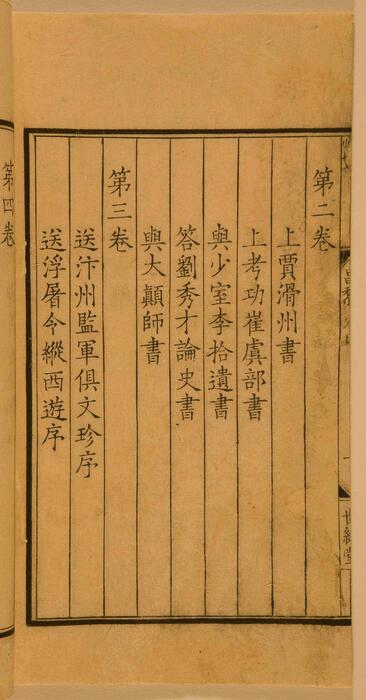 第二卷
上賈滑州書
上考功崔虞部書
與少室李拾遺書
答劉秀才論史書
與大顛師書
第三卷
送汴州監軍俱文珍序
送浮屠令縱西遊序
第四卷